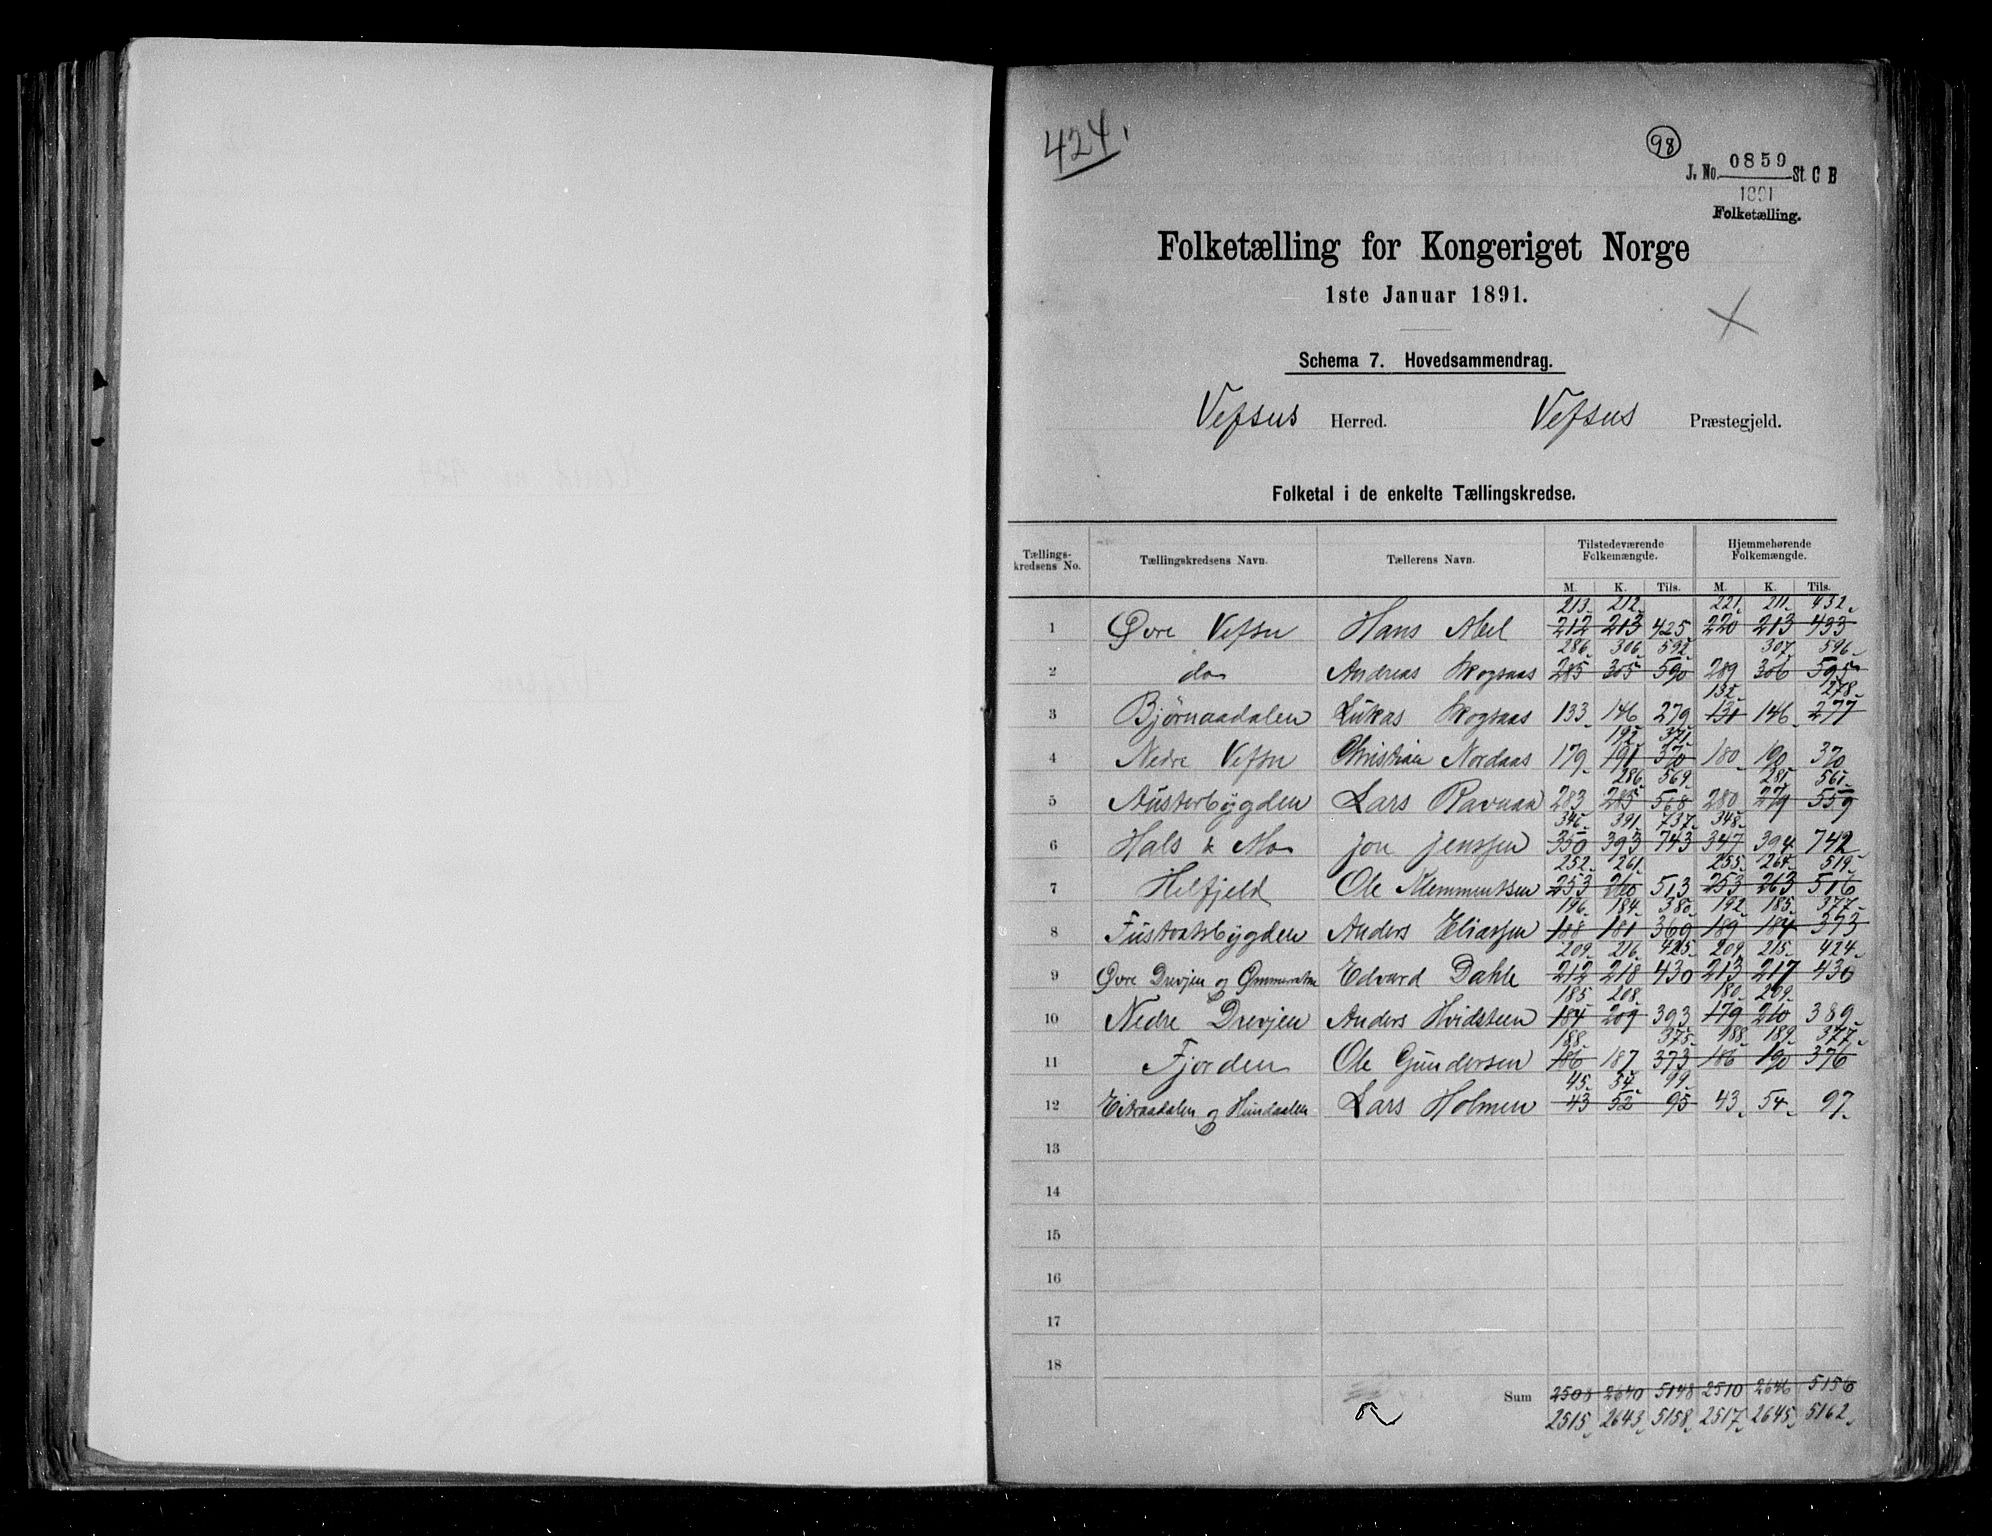 424.
98
J. No. 0859 St C B
1891
Folketælling.
Folketælling for Kongeriget Norge
1ste Januar 1891.
Schema 7. Hovedsammendrag.
Vefsns Herred. Vefsns Præstegjeld.
Folketal i de enkelte Tællingskredse.
Tællings-kredsens No. Tællingskredsens Navn. Tællerens Navn. Tilstedeværende Folkemængde. Hjemmehørende Folkemængde.
M. K. Tils. M. K. Tils.
213 212 221 211 432
1 Øvre Vefsn Hans Abel 212 213 425 220 213 433
286 306 592 307 596
2 do Andreas Skogsaas 285 305 590 289 306 595
132 278
3 Bjørnaadalen Lukas Skogsaas 133 146 279 131 146 277
192 371
4 Nedre Vefsn Christian Nordaas 179 191 370 180 190 370
286 569 281 561
5 Austerbygden Lars Ravnaa 283 285 568 280 279 559
346 391 737 348
6 Hals & Mo Jon Jenssen 350 393 743 347 394 742
252 261 255 264 519
7 Helfjeld Ole Klemmentsen 253 260 513 253 263 516
196 184 380 192 185 377
8 Fustvatsbygden Anders Eliassen 188 181 369 189 184 373
209 216 425 209 215 424
9 Øvre Drevjen og Edvard Dahle 212 218 430 213 217 430
185 208 180 209
10 Nedre Drevjen Anders Hvidsteen 184 209 393 179 210 389
188 375 188 189 377
11 Fjorden Ole Gundersen 186 187 373 186 190 376
45 54 99
12 Eiteraadalen og Hundaalen Lars Holmen 43 52 95 43 54 97
13
14
15
16
17
18
Sum 2508 2640 5148 2510 2646 5156
2515 2643 5158 2517 2645 5162